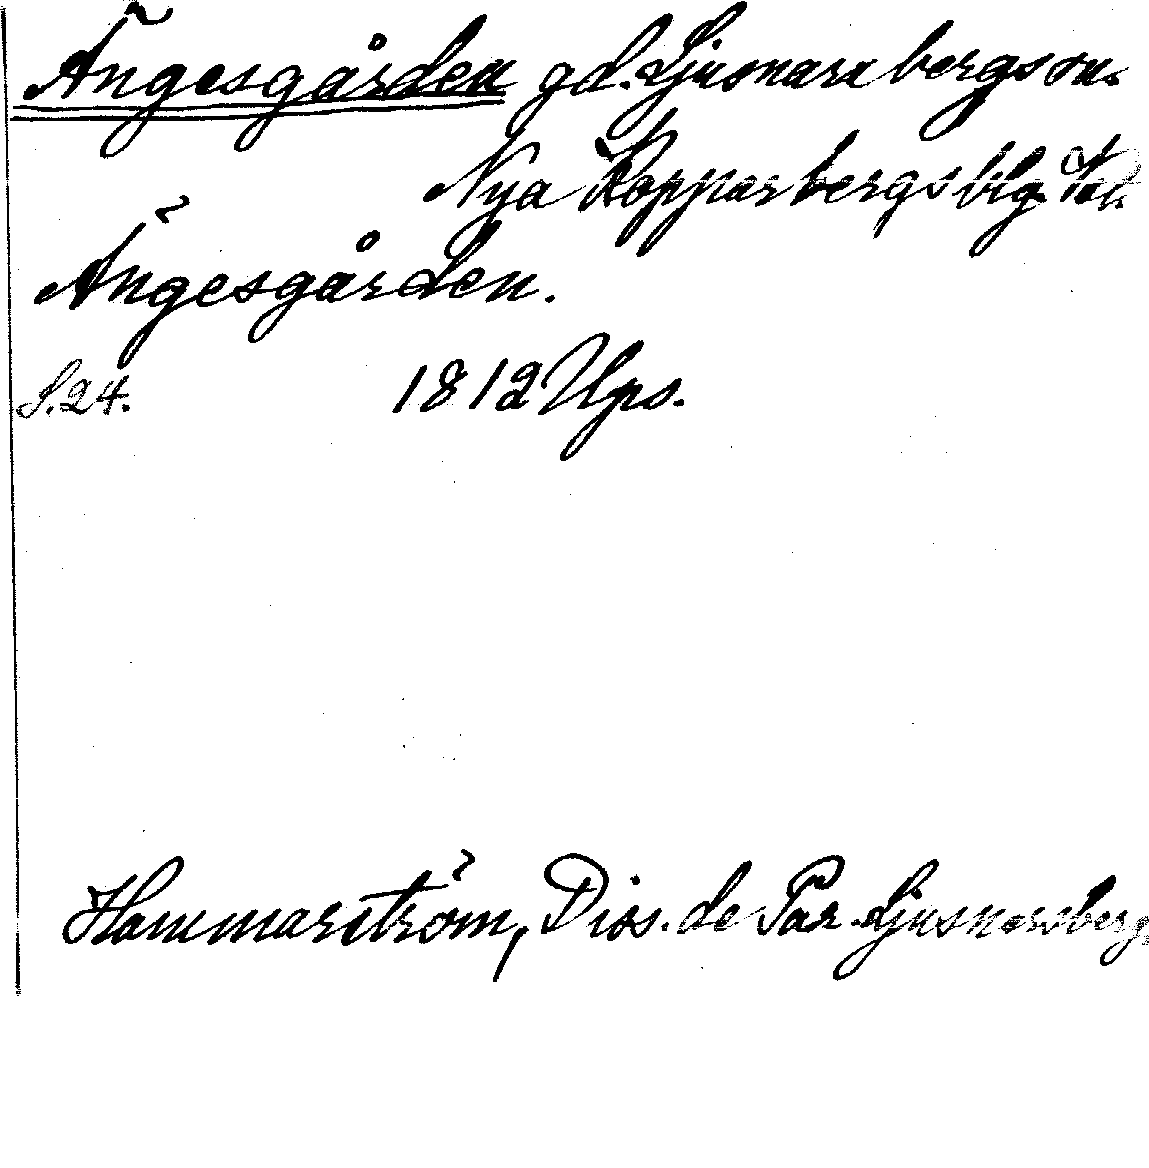 Ängesgården gd. Ljusnarsbergs sn.
Nya Kopparbergs blg.
Ängesgården.
S. 24. 1812 Ups.
Hammarström, Diss. de Par. Ljusnarsberg,